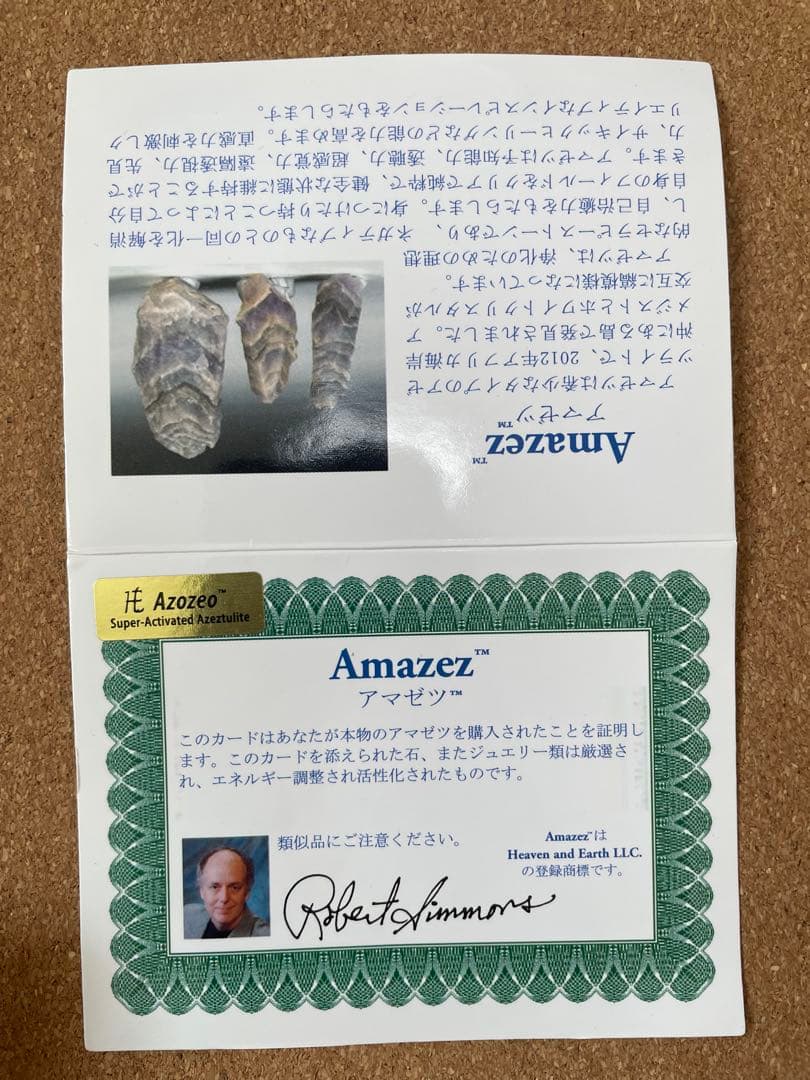 Amazez™
アマゼツ™
アマゼツは希少なタイプのアゼ
ツライトで、2012年アフリカ海岸
沖にある島で発見されました。ア
メジストとホワイトクリスタルが
交互に縞模様になっています。
アマゼツは、浄化のための理想
的なセラピーストーンであり、ネガティブなものとの同一化を解消
し、自己治癒力をもたらします。身につけたり持つことによって自分
自身のフィールドをクリアで純粋で、健全な状態に維持することがで
きます。アマゼツは予知能力、透聴力、超感覚力、遠隔透視力、先見
力、サイキックヒーリングなどの能力を高めます。直感力を刺激しク
リエイティブなインスピレーションをもたらします。
Azozeo™
Super-Activated Azeztulite
Amazez™
アマゼツ™
このカードはあなたが本物のアマゼツを購入されたことを証明し
ます。このカードを添えられた石、またジュエリー類は厳選さ
れ、エネルギー調整され活性化されたものです。
類似品にご注意ください。
Amazez™は
Heaven and Earth LLC.
の登録商標です。
Robert Simmons